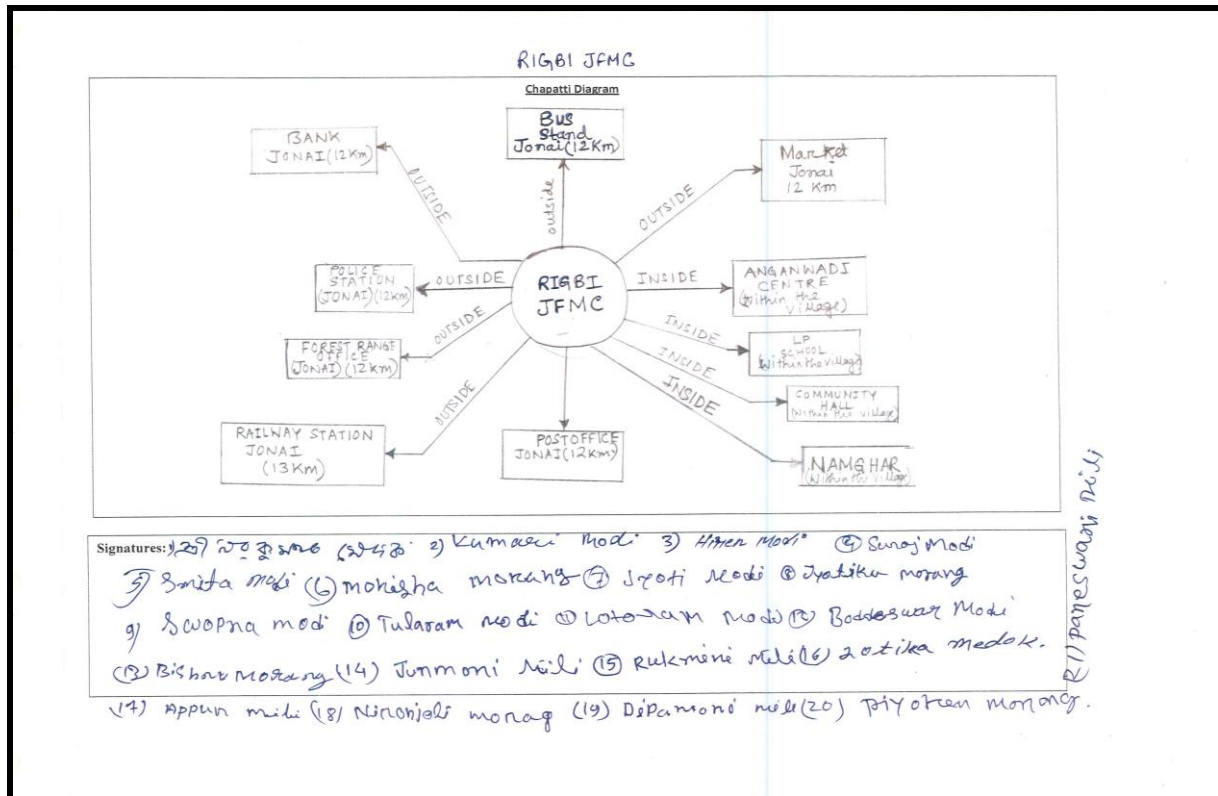 RIGBI JFMC
Chapatti Diagram
BANK
JONAI (12Km)
Bus
Stand
Jonai (12Km)
Market
Jonai
12 Km
OUTSIDE
outside
OUTSIDE
POLICE
STATION
(JONAI) (12Km)
OUTSIDE
RIGBI
JFMC
INSIDE
ANGANWADI
CENTRE
(Within the
Village)
FOREST RANGE
OFFICE
(JONAI) (12Km)
OUTSIDE
INSIDE
LP
SCHOOL
(Within the village)
INSIDE
COMMUNITY
HALL
(Within the village)
RAILWAY STATION
JONAI
(13Km)
OUTSIDE
POSTOFFICE
JONAI (12Km)
INSIDE
NAMGHAR
(Within the village)
Signatures: 1) 2) Kumari Modi 3) Hiren Modi (4) Suraj Modi
5) Smita modi (6) monisha morang (7) Jyoti Modi (8) Jyotika morang
9) Swopna modi (10) Tularam Modi (11) Lotoram Modi (12) Boddeswar Modi
(13) Bishnu Morang (14) Junmoni Mili (15) Rukmini Mili (16) Lotika medok.
(17) Appun mili (18) Nironjoli morag (19) Dipamoni mili (20) Morang.
(21) Daneswari Mili